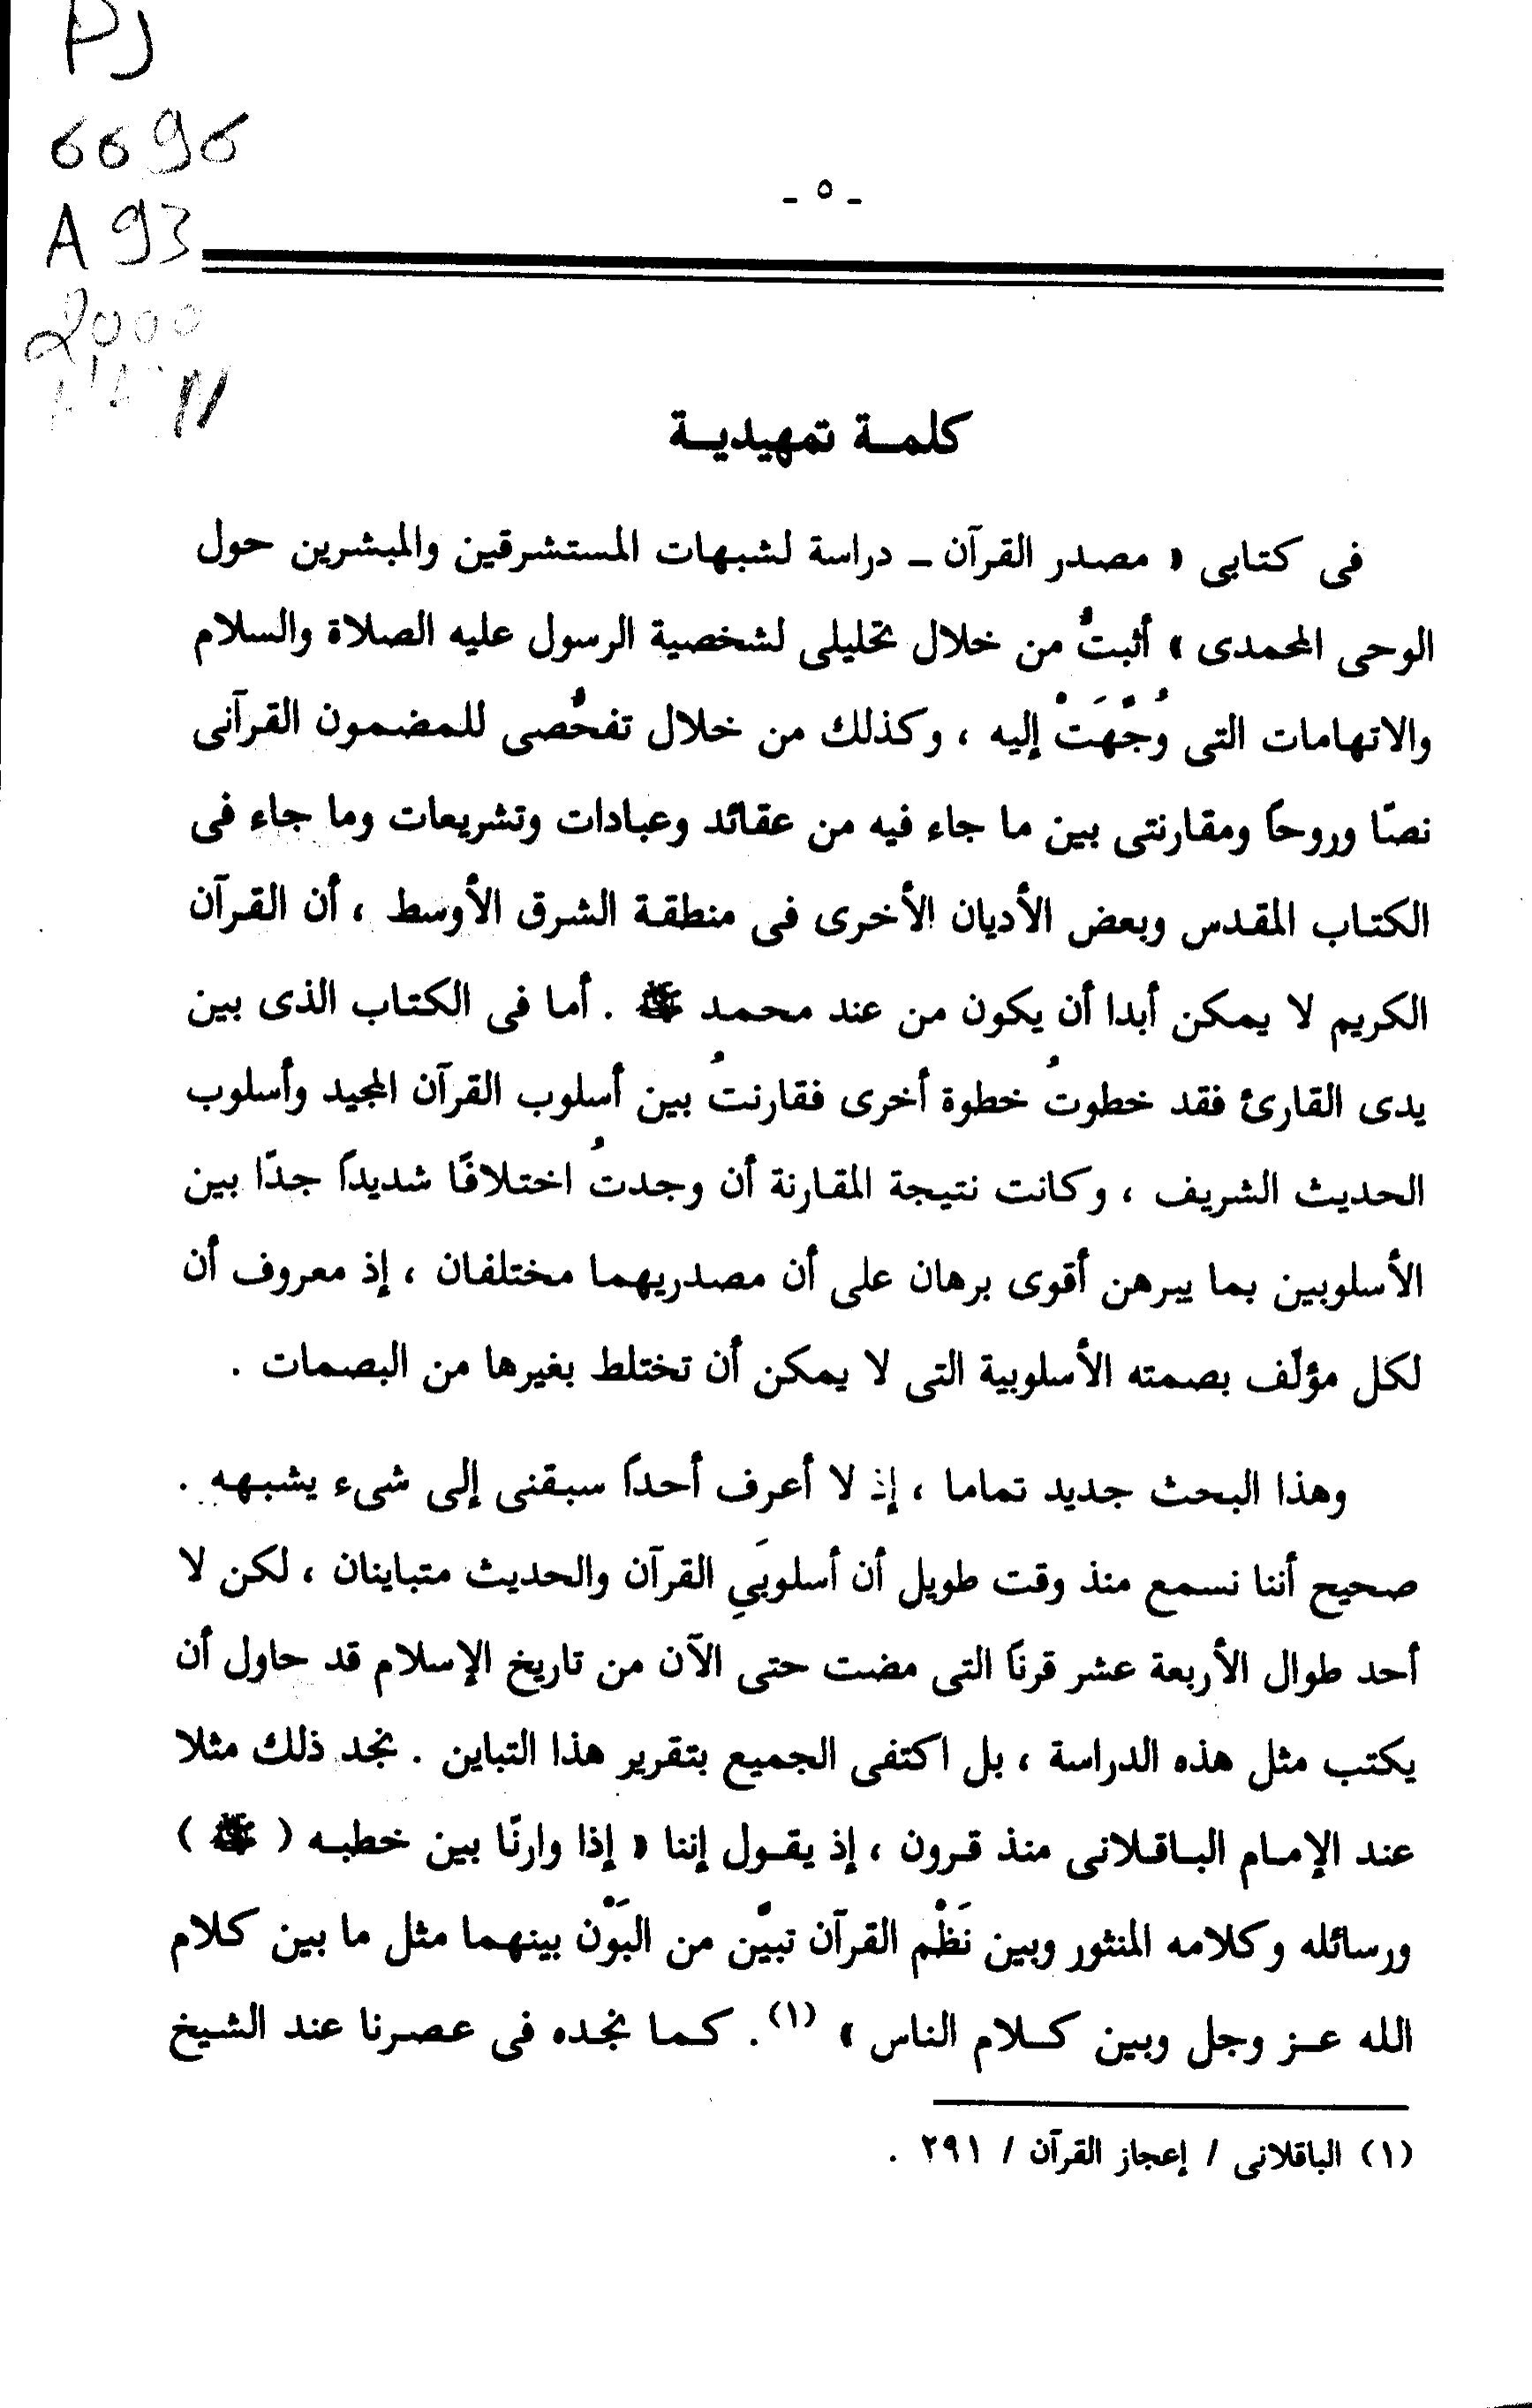 PJ
6696
A93
2000
- ٥ -
كلمة تمهيدية
فى كتابى « مصدر القرآن ـ دراسة لشبهات المستشرقين والمبشرين حول
الوحى المحمدى » أثبتُّ من خلال تحليلى لشخصية الرسول عليه الصلاة والسلام
والاتهامات التى وُجِّهَتْ إليه ، وكذلك من خلال تفحُّصى للمضمون القرآنى
نصّا وروحاً ومقارنتى بين ما جاء فيه من عقائد وعبادات وتشريعات وما جاء فى
الكتاب المقدس وبعض الأديان الأخرى فى منطقة الشرق الأوسط ، أن القرآن
الكريم لا يمكن أبدا أن يكون من عند محمد ﷺ . أما فى الكتاب الذى بين
يدى القارئ فقد خطوتُ خطوة أخرى فقارنتُ بين أسلوب القرآن المجيد وأسلوب
الحديث الشريف ، وكانت نتيجة المقارنة أن وجدتُ اختلافًا شديداً جدّا بين
الأسلوبين بما يبرهن أقوى برهان على أن مصدريهما مختلفان ، إذ معروف أن
لكل مؤلّف بصمته الأسلوبية التى لا يمكن أن تختلط بغيرها من البصمات .
وهذا البحث جديد تماما ، إذ لا أعرف أحداً سبقنى إلى شىء يشبهه .
صحيح أننا نسمع منذ وقت طويل أن أسلوبَىِ القرآن والحديث متباينان ، لكن لا
أحد طوال الأربعة عشر قرناً التى مضت حتى الآن من تاريخ الإسلام قد حاول أن
يكتب مثل هذه الدراسة ، بل اكتفى الجميع بتقرير هذا التباين . نجد ذلك مثلا
عند الإمام الباقلانى منذ قرون ، إذ يقول إننا « إذا وارنّا بين خطبه ( ﷺ )
ورسائله وكلامه المنثور وبين نَظْم القرآن تبيّن من البَوْن بينهما مثل ما بين كلام
الله عز وجل وبين كلام الناس » (١). كما نجده فى عصرنا عند الشيخ
(١) الباقلانى / إعجاز القرآن / ٢٩١ .